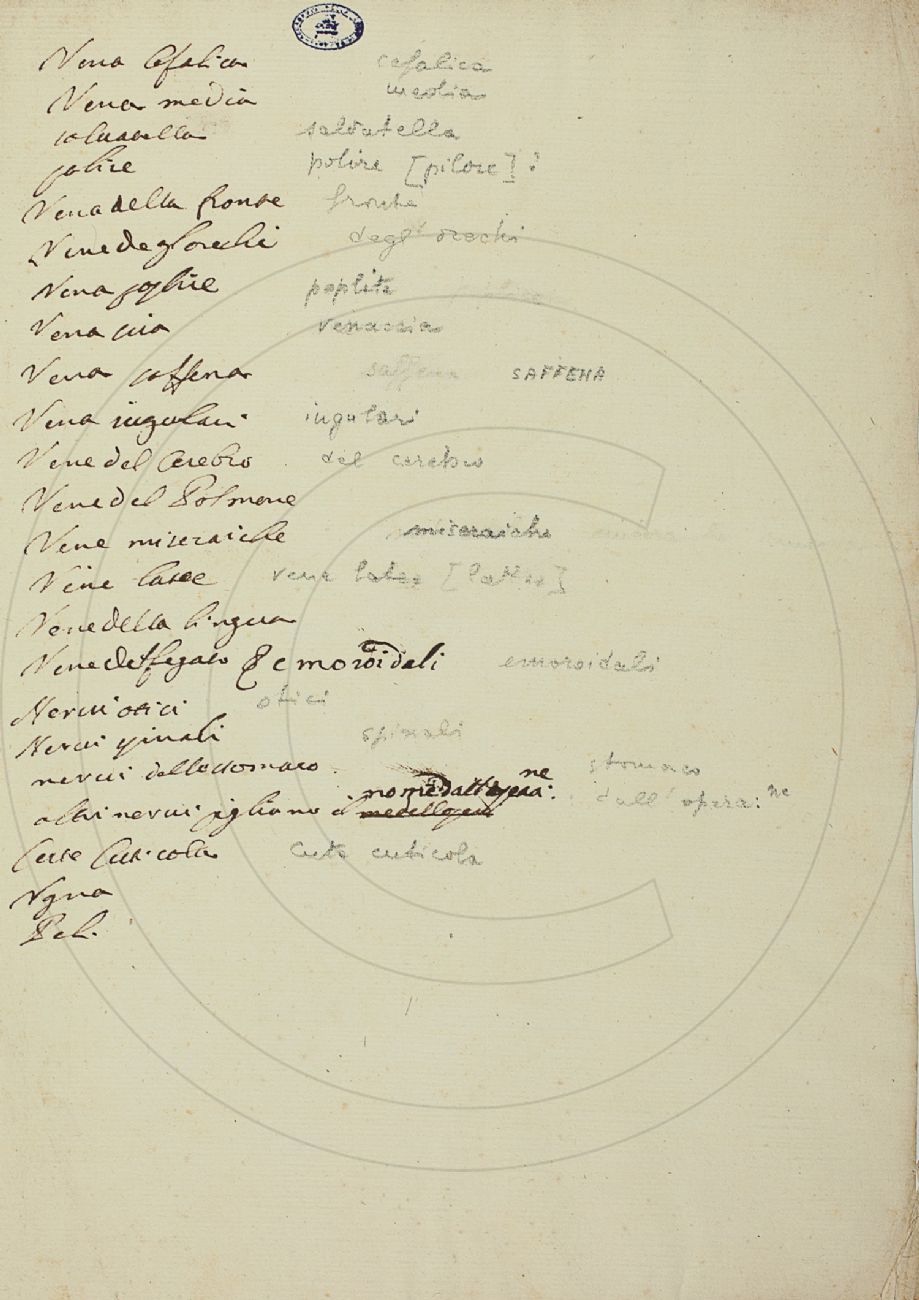 Vena Cefalica cefalica
Vena media media
saluatella salvatella
polire polire [pilore]?
Vena della fronte fronte
Vene degl orechi degl' orechi
Vena poplite poplite
Vena cia venaccia
Vena saffena saffena SAFFENA
Vena iugulari iugulari
Vene del Cerebro del cerebro
Vene del Polmone
Vene miseraiche miseraiche
Vene latee vene latee [lattee]
Vene della lingua
Vene del fegato emoroidali emoroidali
Nerui otici otici
Nerui spinali spinali
nerui dello stomaco stomaco
altri nerui pigliano il nome dall opera:ne dall' opera:ne
Cute Cuticola Cute cuticola
Vgna
Pel.